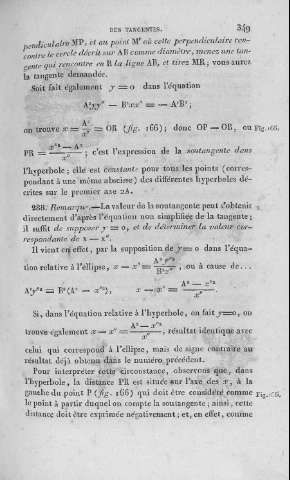 DES TANGENTES. 349
pendiculaire MP, et au point M' où cette perpendiculaire ren-
contre le cercle décrit sur AB comme diamètre, menez une tan-
gente qui rencontre en R la ligne AB, et tirez MR; vous aurez
la tangente demandée.
Soit fait également y = 0 dans l'équation
A²yy" — B²xx" = — A²B²;
on trouve x = A²/x" = OR (fig. 166); donc OP — OR, ou Fig. 166.
PR = x"² — A²/x"; c'est l'expression de la soutangente dans
l'hyperbole; elle est constante pour tous les points (corres-
pondant à une même abscisse) des différentes hyperboles dé-
crites sur le premier axe 2A.
288. Remarque. — La valeur de la soutangente peut s'obtenir
directement d'après l'équation non simplifiée de la tangente;
il suffit de supposer y = 0, et de déterminer la valeur cor-
respondante de x — x".
Il vient en effet, par la supposition de y = 0 dans l'équa-
tion relative à l'ellipse, x — x" = A²y"²/B²x", ou à cause de...
A²y"² = B²(A² — x"²), x — x" = A² — x"²/x".
Si, dans l'équation relative à l'hyperbole, on fait y=0, on
trouve également x — x" = A² — x"²/x", résultat identique avec
celui qui correspond à l'ellipse, mais de signe contraire au
résultat déjà obtenu dans le numéro précédent.
Pour interpréter cette circonstance, observons que, dans
l'hyperbole, la distance PR est située sur l'axe des x, à la
gauche du point P (fig. 166) qui doit être considéré comme Fig. 166.
le point à partir duquel on compte la soutangente; ainsi, cette
distance doit être exprimée négativement; et, en effet, comme